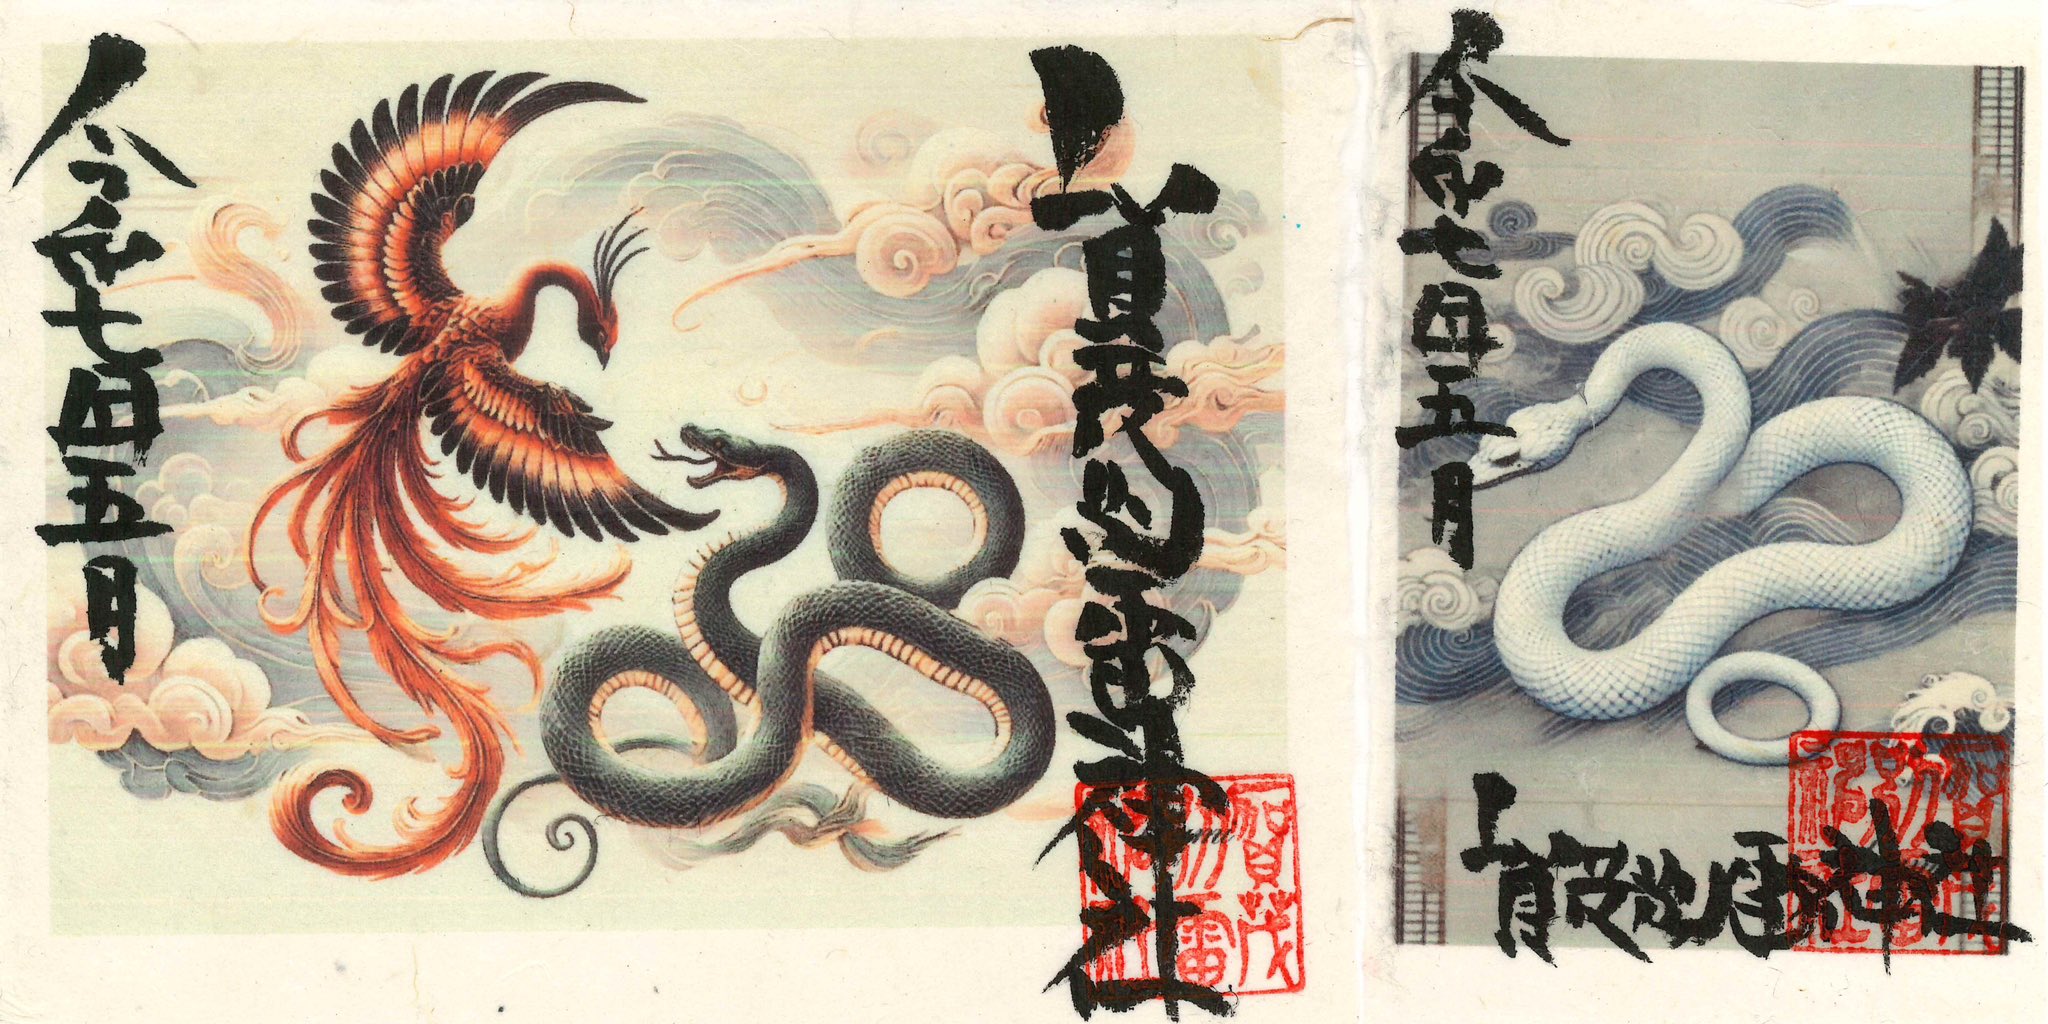 賀茂別雷神社
令和七年五月
賀茂
別雷
神社
令和七年五月
賀茂別雷神社
賀茂
別雷
神社